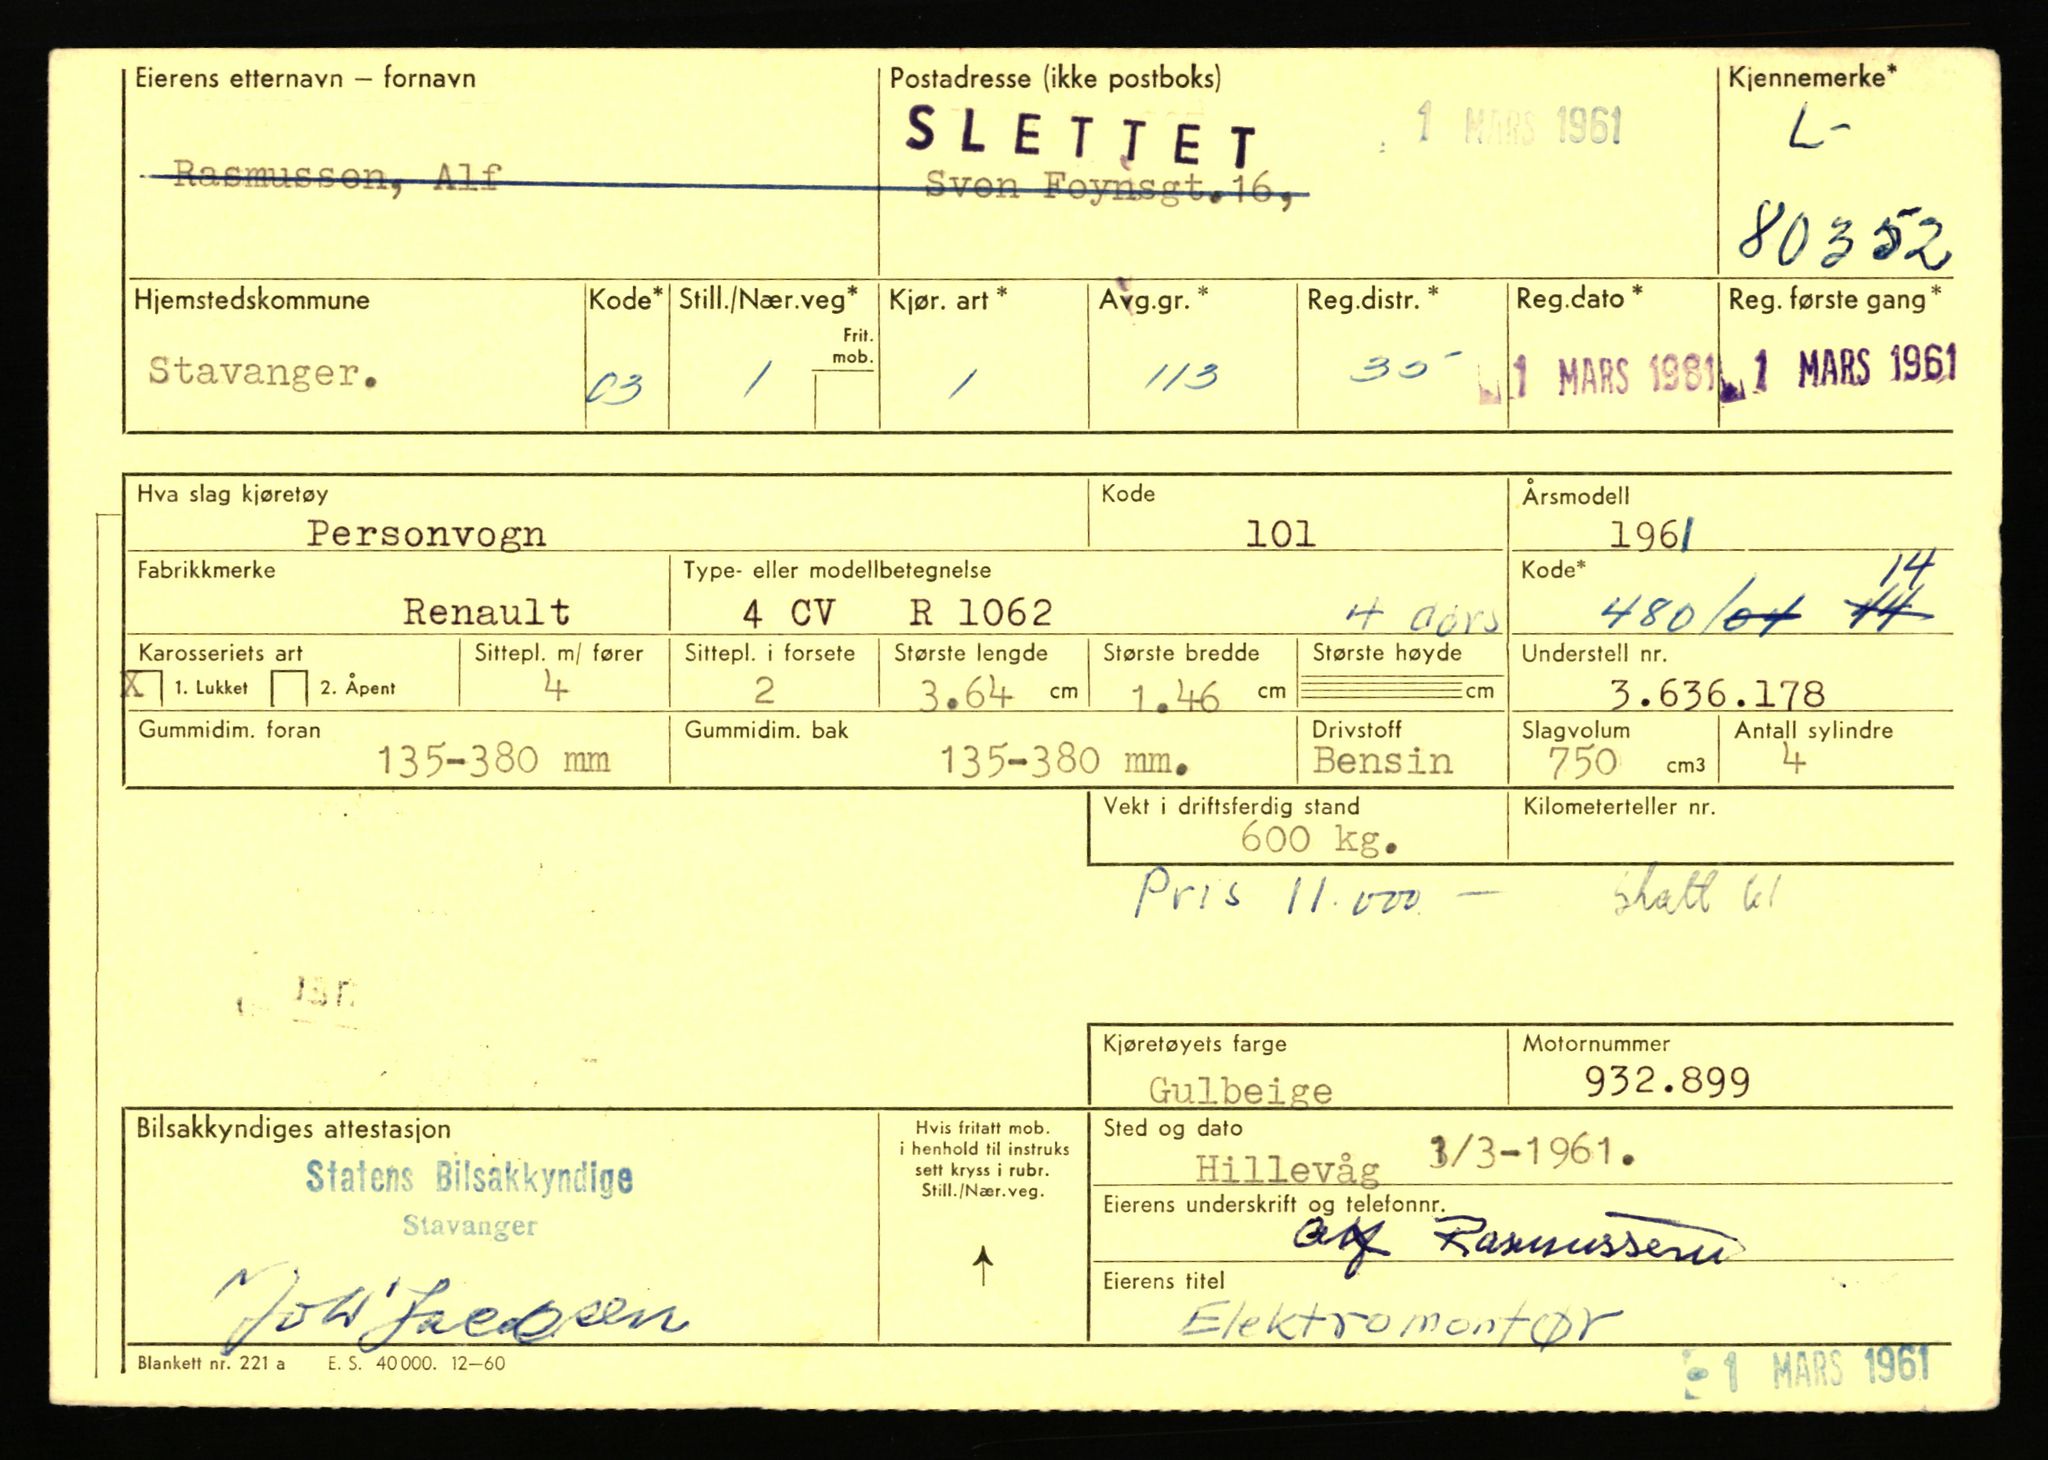 Eierens etternavn – fornavn
Postadresse (ikke postboks)
Kjennemerke*
SLETTET
1 MARS 1961
L-
Rasmusson, Alf
Sven Foynsgt. 16,
80352
Hjemstedskommune Kode* Still./Nær.veg* Kjør. art* Avg.gr.* Reg.distr.* Reg.dato* Reg. første gang*
Frit. mob.
Stavanger. 03 1 1 113 35 1 MARS 1961 1 MARS 1961
Hva slag kjøretøy Kode Årsmodell
Personvogn 101 1961
Fabrikkmerke Type- eller modellbetegnelse Kode* 14
Renault 4 CV R 1062 4 dørs 480/04 44
Karosseriets art Sittepl. m/ fører Sittepl. i forsete Største lengde Største bredde Største høyde Understell nr.
X 1. Lukket 2. Åpent 4 2 3.64 cm 1.46 cm cm 3.636.178
Gummidim. foran Gummidim. bak Drivstoff Slagvolum Antall sylindre
135-380 mm 135-380 mm. Bensin 750 cm3 4
Vekt i driftsferdig stand Kilometerteller nr.
600 kg.
Pris 11.000 — skatt 61
Kjøretøyets farge Motornummer
Gulbeige 932.899
Bilsakkyndiges attestasjon
Statens Bilsakkyndige
Stavanger
Hvis fritatt mob.
i henhold til instruks
sett kryss i rubr.
Still./Nær.veg.
Sted og dato
Hillevåg 1/3-1961.
Eierens underskrift og telefonnr.
Alf Rasmussen
Eierens titel
Jacobsen
Elektromontør
Blankett nr. 221 a E. S. 40 000. 12–60
1 MARS 1961